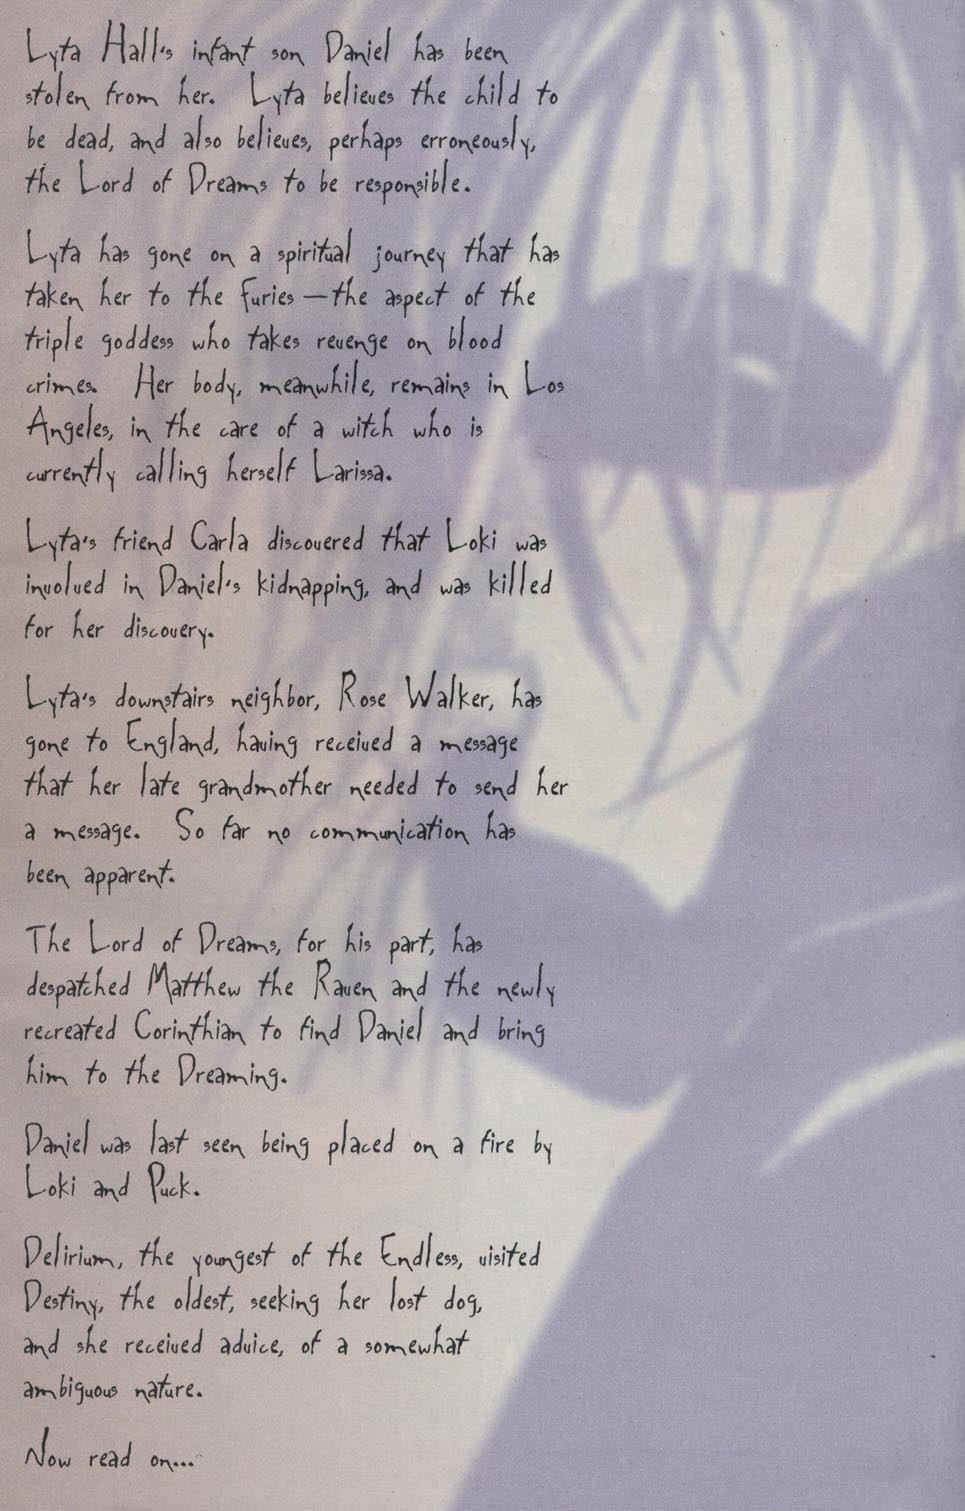 Lyta Hall's infant son Daniel has been
stolen from her. Lyta believes the child to
be dead, and also believes, perhaps erroneously,
the Lord of Dreams to be responsible.
Lyta has gone on a spiritual journey that has
taken her to the Furies — the aspect of the
triple goddess who takes revenge on blood
crimes. Her body, meanwhile, remains in Los
Angeles, in the care of a witch who is
currently calling herself Larissa.
Lyta's friend Carla discovered that Loki was
involved in Daniel's kidnapping, and was killed
for her discovery.
Lyta's downstairs neighbor, Rose Walker, has
gone to England, having received a message
that her late grandmother needed to send her
a message. So far no communication has
been apparent.
The Lord of Dreams, for his part, has
despatched Matthew the Raven and the newly
recreated Corinthian to find Daniel and bring
him to the Dreaming.
Daniel was last seen being placed on a fire by
Loki and Puck.
Delirium, the youngest of the Endless, visited
Destiny, the oldest, seeking her lost dog,
and she received advice, of a somewhat
ambiguous nature.
Now read on...